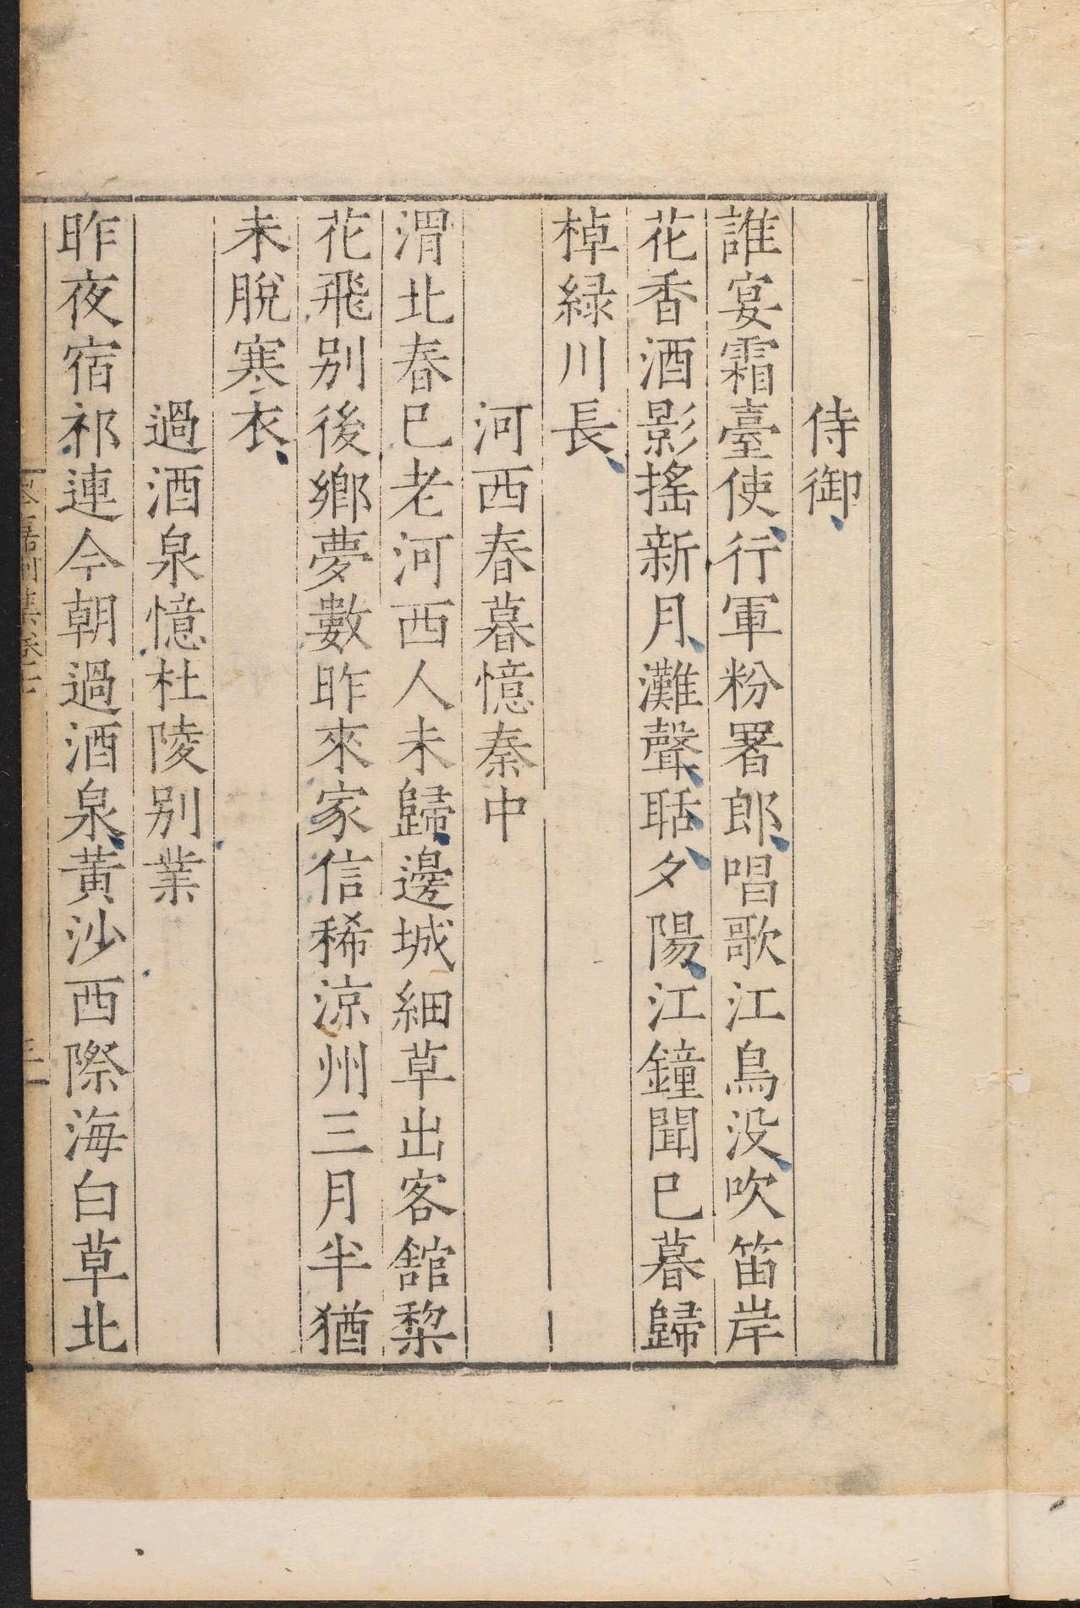 侍御
誰宴霜臺使行軍粉署郎唱歌江鳥没吹笛岸
花香酒影揺新月灘聲聒夕陽江鐘聞已暮歸
棹緑川長
河西春暮憶秦中
渭北春已老河西人未歸邊城細草出客舘棃
花飛别後鄉夢數昨來家信稀涼州三月半猶
未脫寒衣
過酒泉憶杜陵别業
昨夜宿祁連今朝過酒泉黃沙西際海白草北